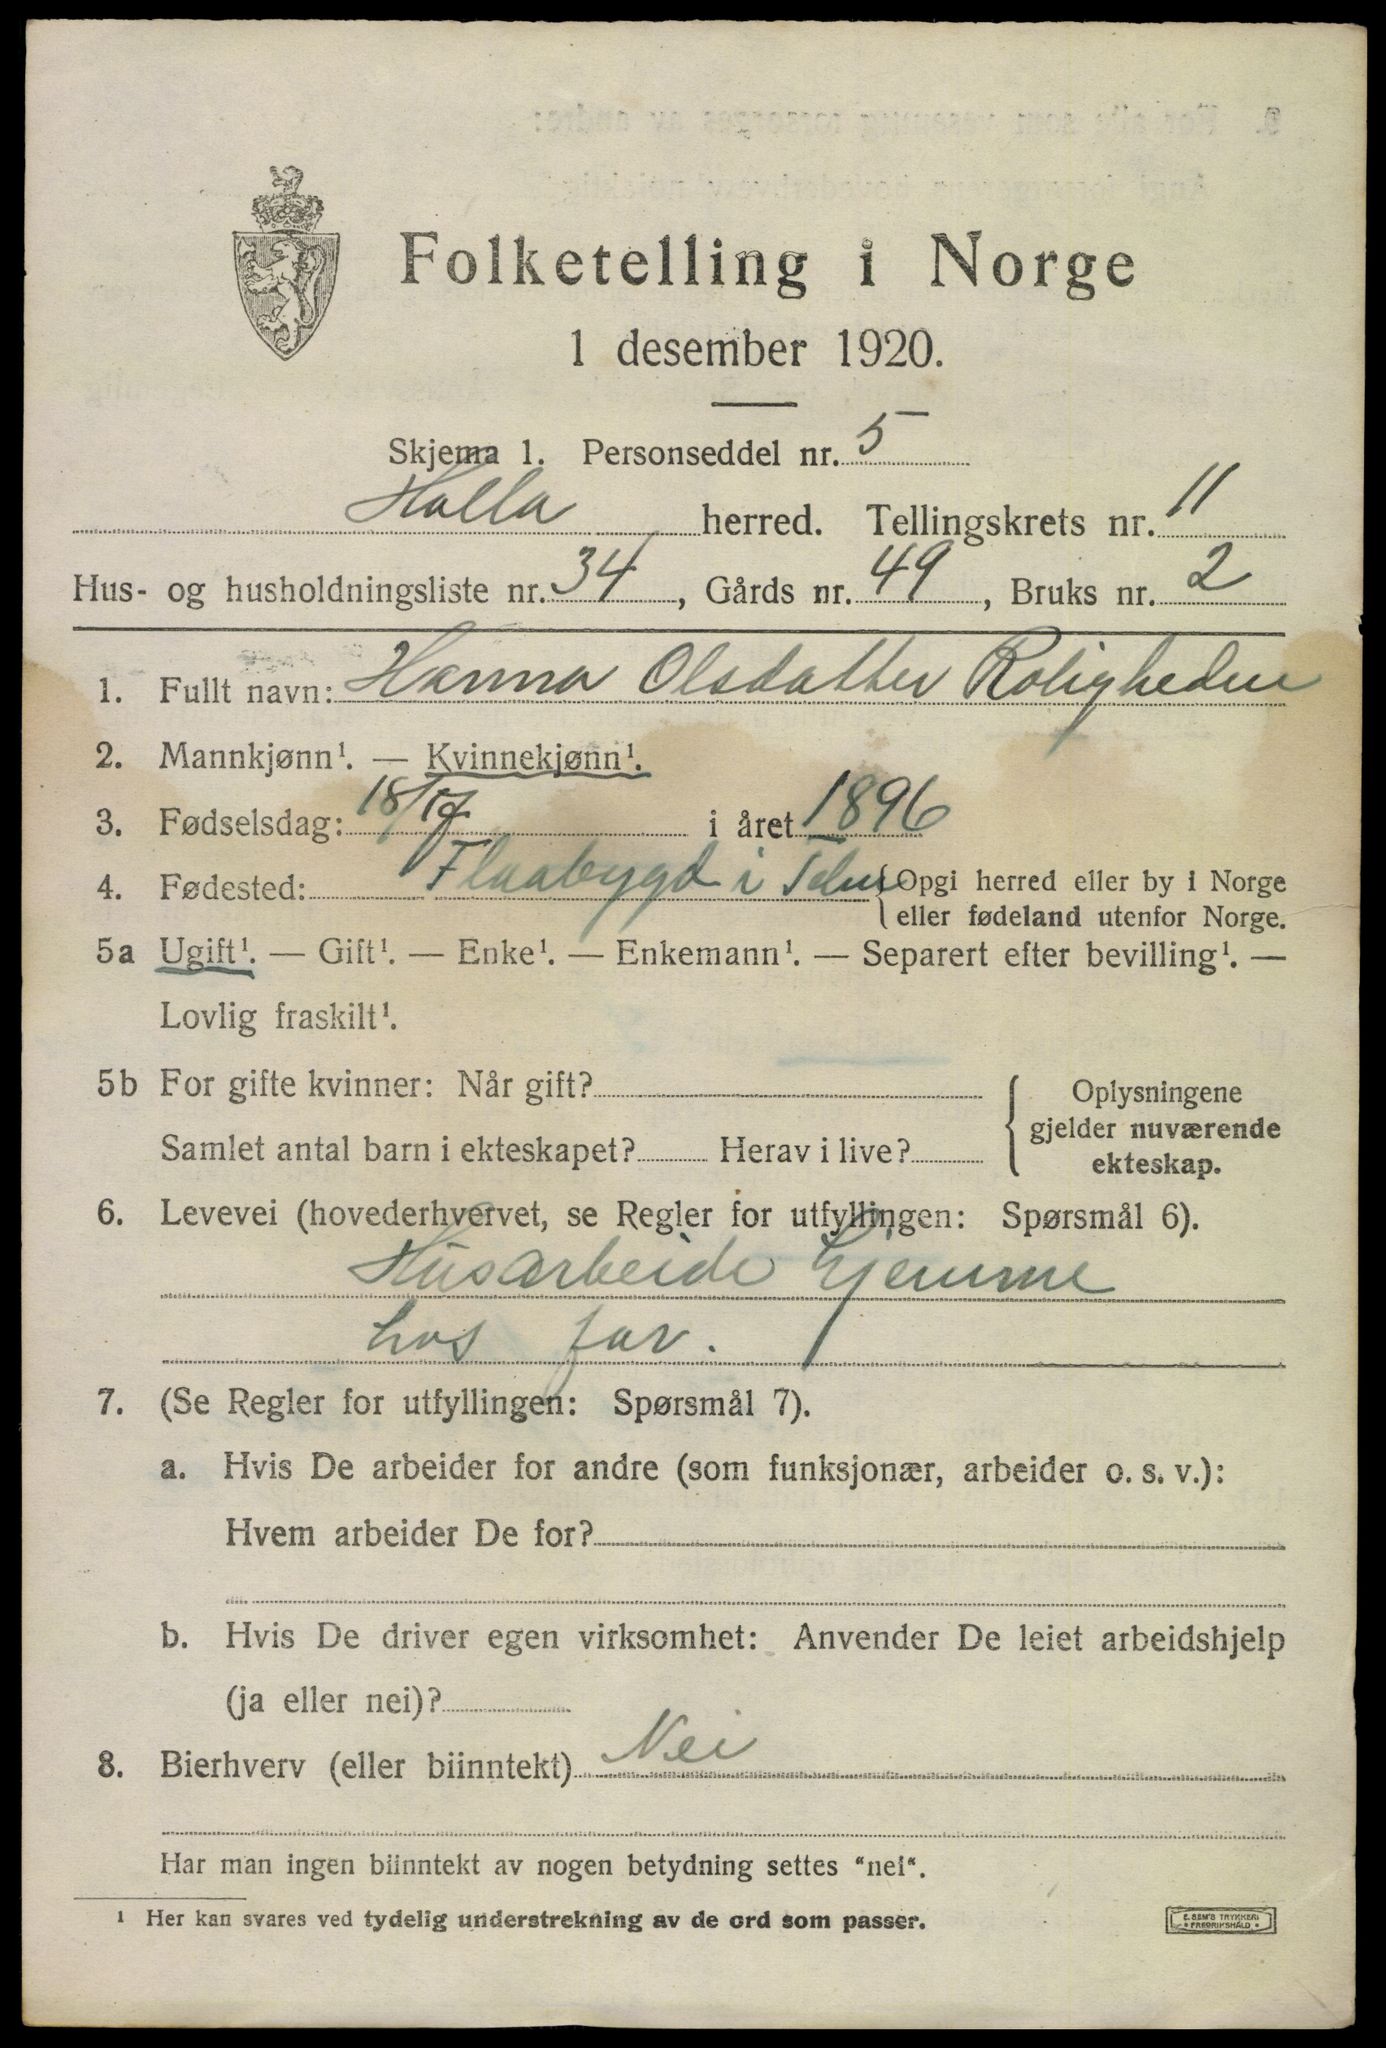 Folketelling i Norge
1 desember 1920.
Skjema 1. Personseddel nr. 5
Holla herred. Tellingskrets nr. 11
Hus- og husholdningsliste nr. 34, Gårds nr. 49, Bruks nr. 2
1. Fullt navn: Hanna Olsdatter Roligheden
2. Mannkjønn¹. — Kvinnekjønn¹.
3. Fødselsdag: 18/ i året 1896
4. Fødested: Flaabygd i Telm {Opgi herred eller by i Norge
eller fødeland utenfor Norge.
5a Ugift¹. — Gift¹. — Enke¹. — Enkemann¹. — Separert efter bevilling¹. —
Lovlig fraskilt¹.
5b For gifte kvinner: Når gift?
Samlet antal barn i ekteskapet? Herav i live?
Oplysningene
gjelder nuværende
ekteskap.
6. Levevei (hovederhvervet, se Regler for utfyllingen: Spørsmål 6).
Husarbeide hjemme
hos far.
7. (Se Regler for utfyllingen: Spørsmål 7).
a. Hvis De arbeider for andre (som funksjonær, arbeider o. s. v.):
Hvem arbeider De for?
b. Hvis De driver egen virksomhet: Anvender De leiet arbeidshjelp
(ja eller nei)?
8. Bierhverv (eller biinntekt) Nei
Har man ingen biinntekt av nogen betydning settes "nei".
¹ Her kan svares ved tydelig understrekning av de ord som passer.
E. SEM'S TRYKKERI
FREDRIKSHALD